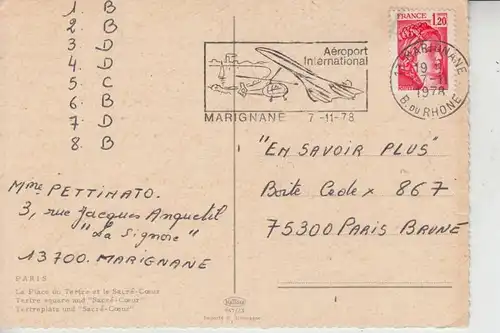 1. B
2. B
3. D
4. D
5. C
6. B
7. D
8. B
Mme PETTINATO.
3, rue Jacques Anquetil
"La Signore"
13700. MARIGNANE
PARIS
La Place du Tertre et le Sacré-Cœur
Tertre square and "Sacré-Cœur"
Tertreplatz und "Sacré-Cœur"
Aéroport
International
MARIGNANE 7-11-78
FRANCE
1,20
MARIGNANE
19 H
1978
B. DU RHONE
"EN SAVOIR PLUS"
Boite Cedex 867
75300 PARIS BRUNE